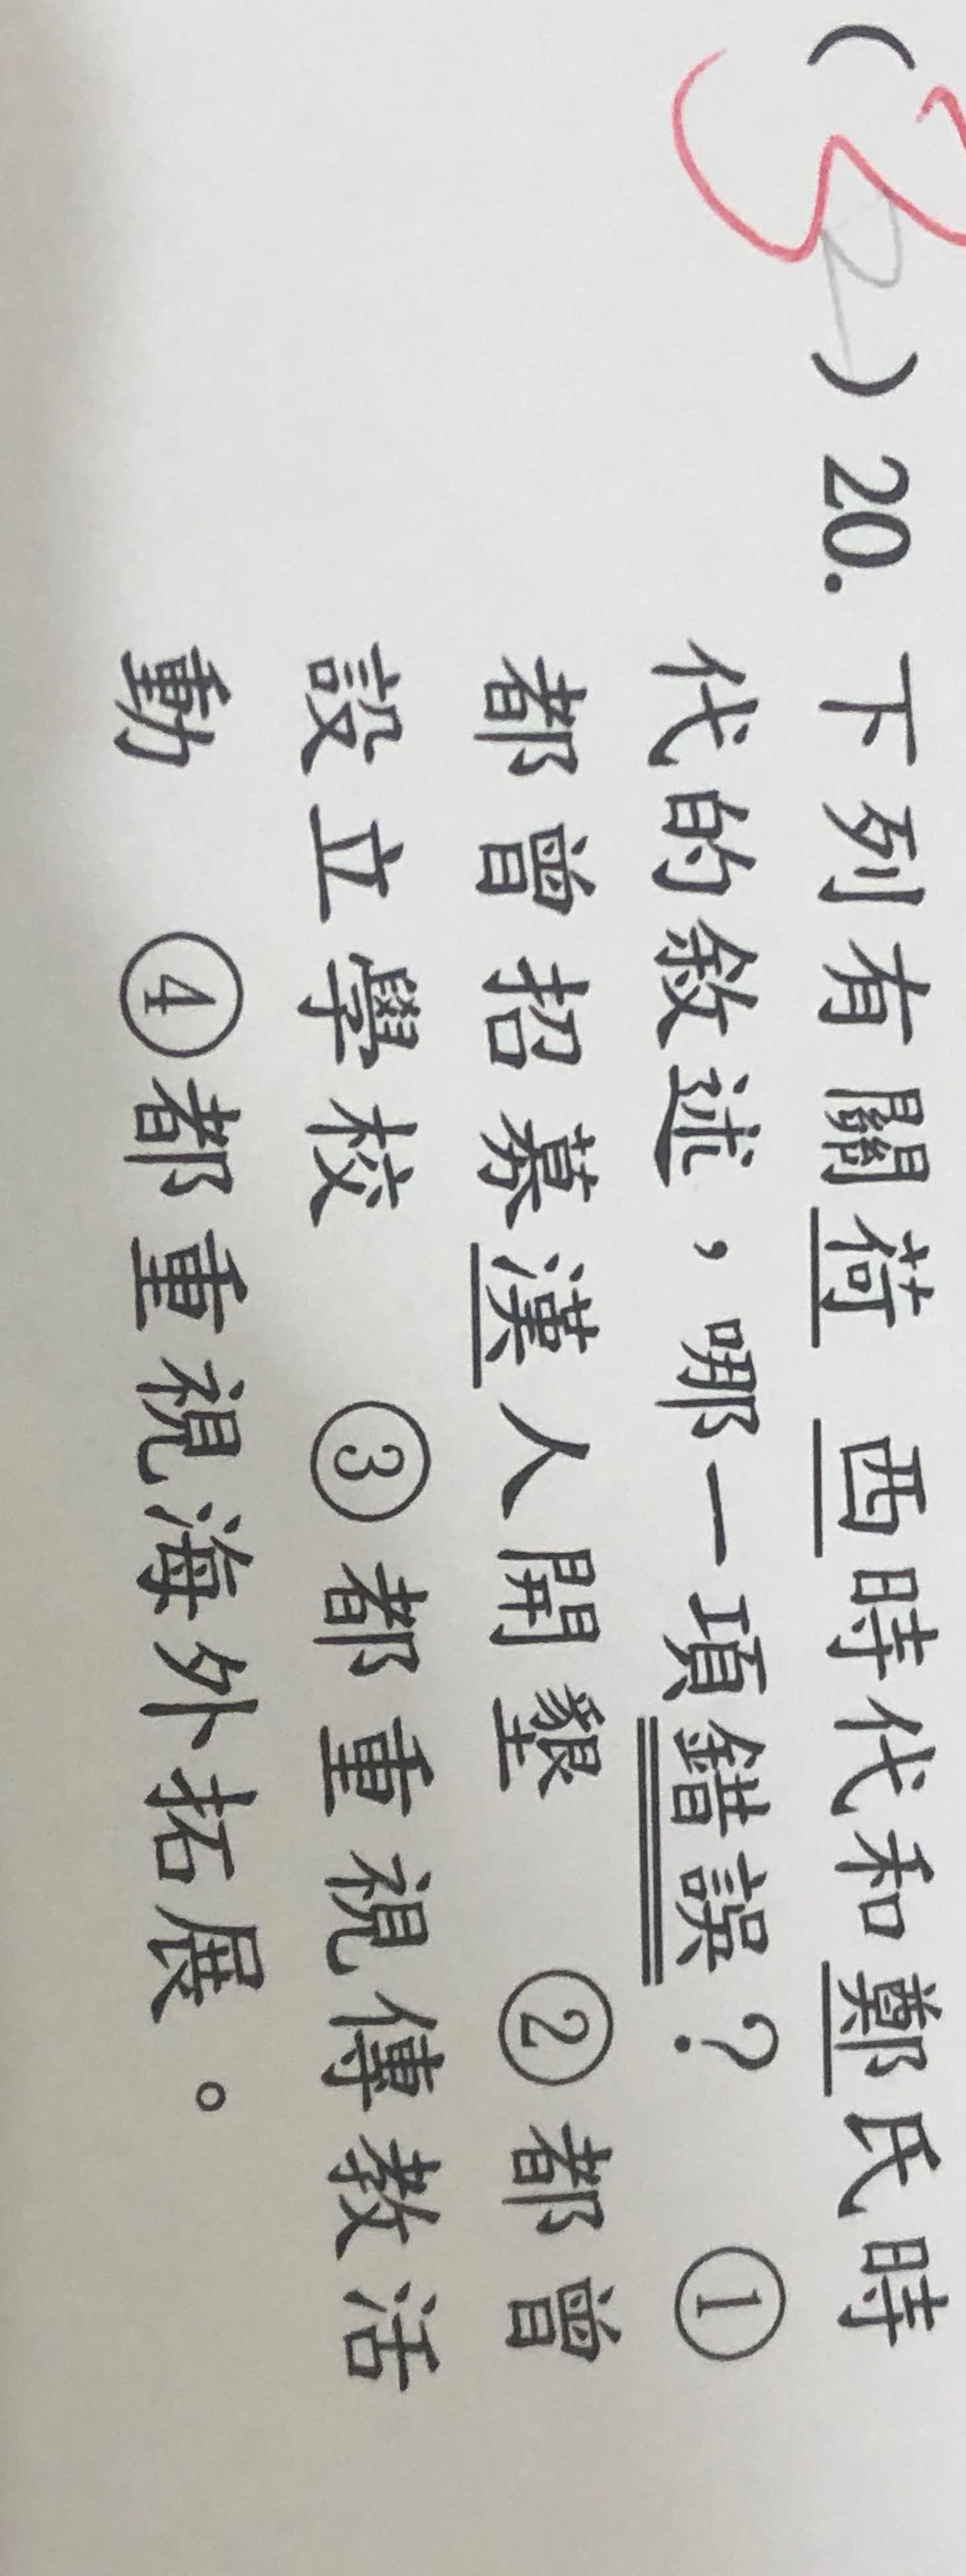 (32)20. 下列有關荷 西時代和鄭氏時
代的敘述，哪一項錯誤？ ①
都曾招募漢人開墾 ②都曾
設立學校 ③都重視傳教活
動 ④都重視海外拓展。